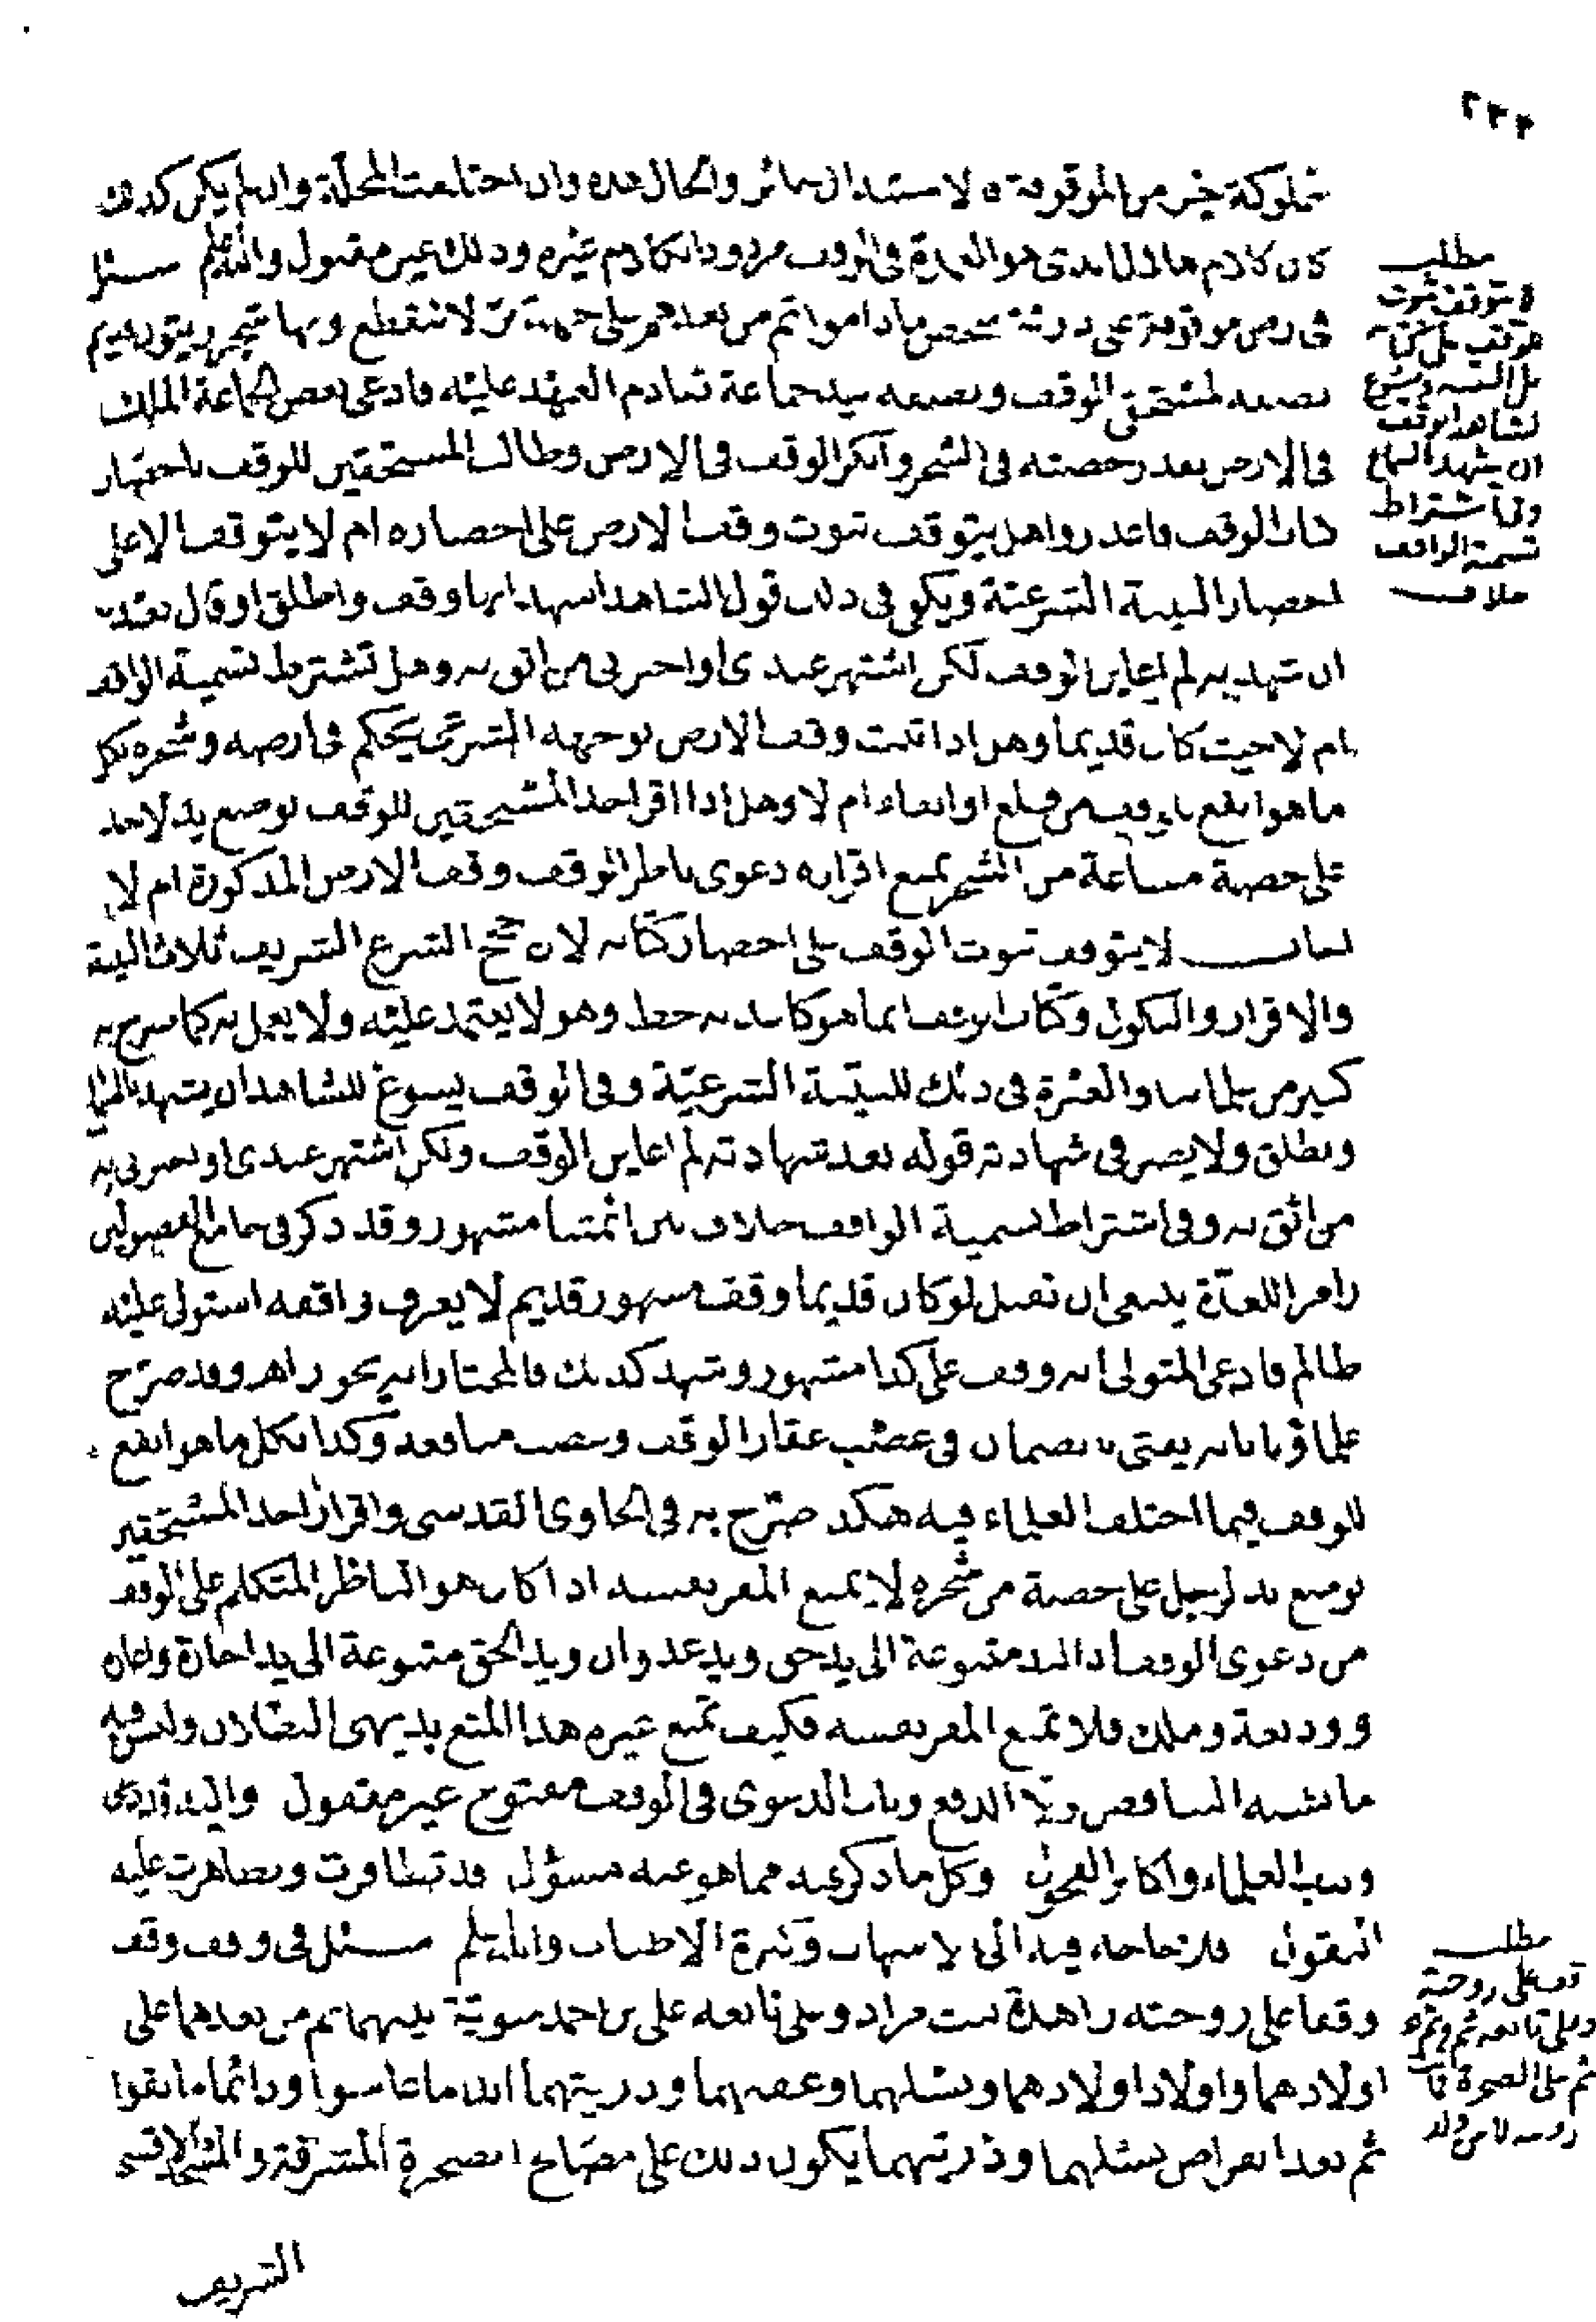 ٢٣٢
مملوكة خير من الموقوفة فالاستبدال جائز والحال هذه وان اختلفت المحلة وان لم يكن كذلك
كان كلام هلال الذى هو العمدة فى الوقف مردودا بكلام غيره وذلك غير مقبول والله اعلم سئل
فى ارض موقوفة على ذرية شخص ماداموا ثم من بعدهم على جهة بر لا تنقطع وبها شجر زيتون قديم
نصفه لمستحقى الوقف ونصفه بيد جماعة تقادم العهد عليه فادعى بعض الجماعة الملك
فى الارض بعد حصته فى الشجر وانكر الوقف فى الارض وطالب المستحقين للوقف باحضار
كتاب الوقف فاعتذروا هل يتوقف ثبوت وقف الارض على احضاره ام لا يتوقف الا على
احضار البينة الشرعية ويكفى فى ذلك قول الشاهد اشهد انها وقف واطلق او قال بعد
ان شهد به لم اعاين الوقف لكن اشتهر عندى او اخبرنى من اثق به وهل تشترط تسمية الواقف
ام لا حيث كان قديما وهل اذا ثبت وقف الارض بوجهه الشرعى يحكم فى ارضه وشجره بكل
ما هو انفع للوقف من قلع او ابقاء ام لا وهل اذا اقر احد المستحقين للوقف بوضع يد لاحد
على حصة مشاعة من الشجر يمنع اقراره دعوى ناظر الوقف وقف الارض المذكورة ام لا
اجاب لا يتوقف ثبوت الوقف على احضار كتابه لان حجج الشرع الشريف ثلاث البينة
والاقرار والنكول وكتاب الوقف انما هو كاغد به خط وهو لا يعتمد عليه ولا يعمل به كما صرح به
كثير من علمائنا والعبرة فى ذلك للبينة الشرعية وفى الوقف يسوغ للشاهد ان يشهد بالسماع
ويطلق ولا يضر فى شهادته قوله بعد شهادته لم اعاين الوقف ولكن اشتهر عندى او اخبرنى به
من اثق به وفى اشتراط تسمية الواقف خلاف بين ائمتنا مشهور وقد ذكر فى جامع الفصولين
رامزا للعدة ينبغى ان تقبل لو كان قديما وقف مشهور قديم لا يعرف واقفه استولى عليه
ظالم فادعى المتولى انه وقف على كذا مشهور وشهد كذلك فالمختار انه يجوز اهـ وقد صرح
علماؤنا بانه يفتى بالضمان فى غصب عقار الوقف وغصب منافعه وكذا بكل ما هو انفع
للوقف فيما اختلف العلماء فيه هكذا صرح به فى الحاوى القدسى واقرار احد المستحقين
بوضع يد لرجل على حصة من شجره لا يمنع المقر بنفسه اذا كان هو الناظر المتكلم على الوقف
من دعوى الوقف اذ اليد متنوعة الى يد حق ويد عدوان ويد الحق متنوعة الى يد اجارة واعارة
ووديعة وملك فلا تمنع المقر بنفسه فكيف تمنع غيره هذا المنع بديهى البطلان وليس فيه
ما يشبه التناقض ولا الدفع وباب الدعوى فى الوقف مفتوح غير مقفول
العلماء واكابر الفحول وكل ما ذكر عنه مما هو عنه مسؤل قد تظافرت وتظاهرت عليه
النقول فلا حاجة فيه الى الاسهاب وكثرة الاطناب والله اعلم سئل فى وقف وقف
وقفا على زوجته زاهدة بنت مراد وعلى تابعه على بن احمد سوية بينهما ثم من بعدهما على
اولادهما واولاد اولادهما ونسلهما وعقبهما وذريتهما ابدا ما تناسلوا ودائما ما بقوا
ثم بعد انقراض نسلهما وذريتهما يكون ذلك على مصالح الصخرة المشرفة والمسجد الاقصى
الشريف
مطلب
لا يتوقف ثبوت
الوقف على كتابه
بل البينة ويسوغ
لشاهد الوقف
ان يشهد بالسماع
وفى اشتراط
تسمية الواقف
خلاف
مطلب
وقف على زوجته
وعلى تابعه ثم وثم
ثم على الصخرة